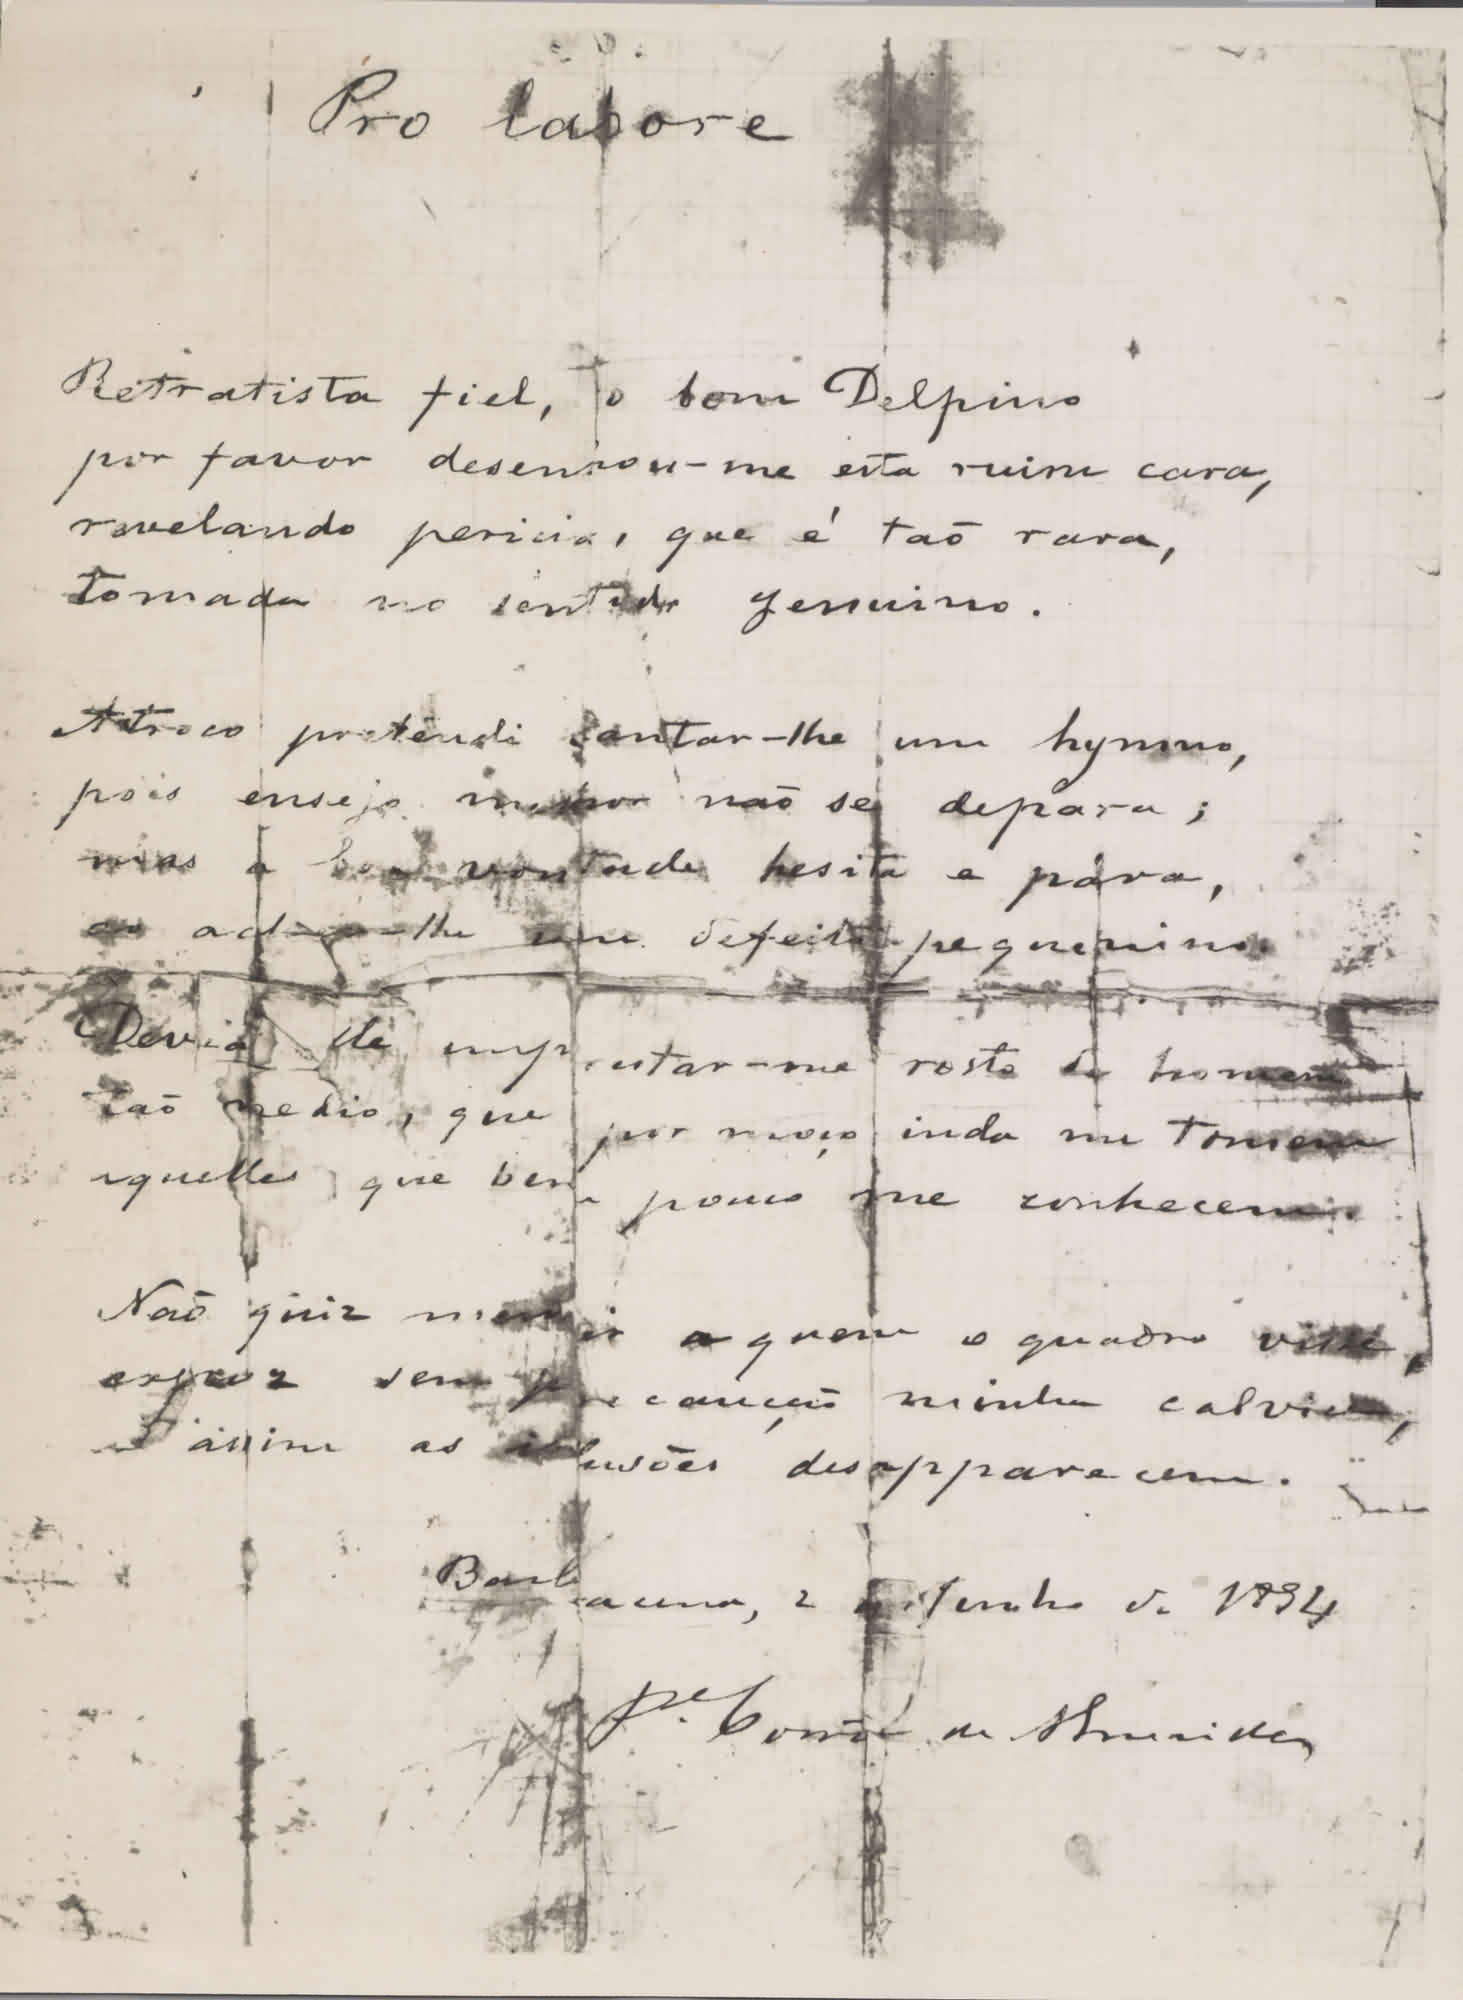 Pro labore
Retratista fiel, o bom Delpino
por favor desenhou-me esta ruim cara,
revelando pericia, que é taõ rara,
tomada no sentido genuino.
A troco pretendi cantar-lhe um hymno,
pois ensejo melhor naõ se depara;
mas a boa vontade hesita e pára,
ao achar-lhe um defeito pequenino.
Devia de emprestar-me rosto de homem
taõ nedio, que por moço inda me tomem
aquelles que bem pouco me conhecem.
Naõ quiz mentir a quem o quadro visse,
expoz sem precauçaõ minha calvice,
e assim as illusões desapparecem.
Barbacena, 2 de Junho de 1894
Pe. Corrêa de Almeida